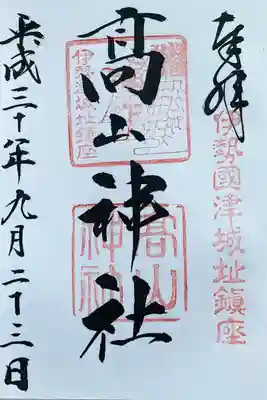 奉拝
伊勢國津城址鎮座
高山神社
伊勢津城址鎮座
高山神社
平成三十年九月二十三日